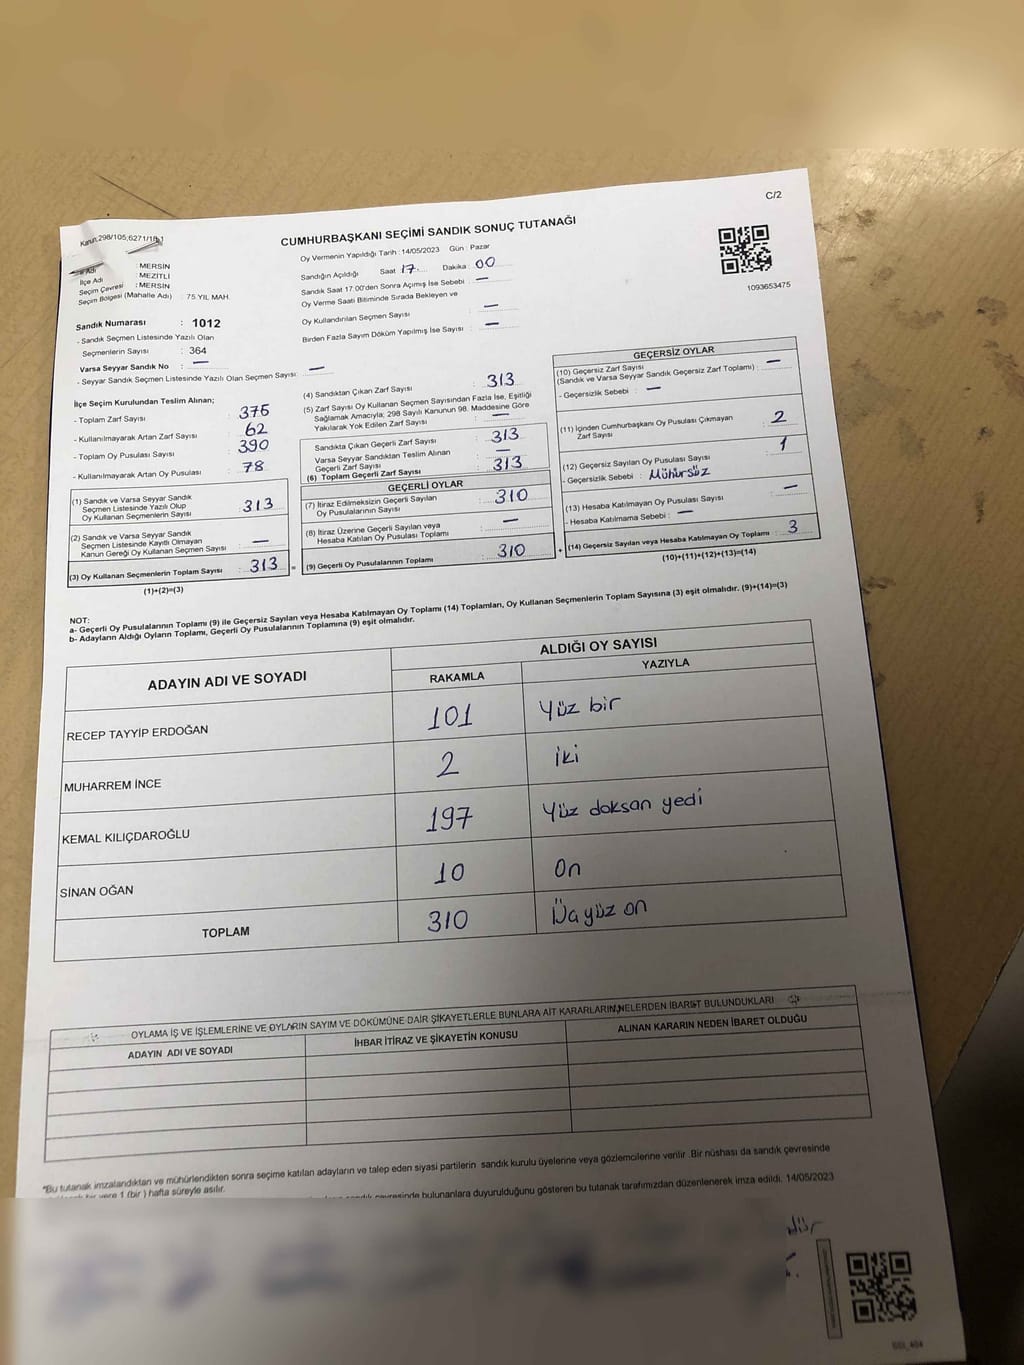 C/2
Kanun:298/105;6271/18
CUMHURBAŞKANI SEÇİMİ SANDIK SONUÇ TUTANAĞI
Adı : MERSİN
İlçe Adı : MEZİTLİ
Seçim Çevresi : MERSİN
Seçim Bölgesi (Mahalle Adı) : 75 YIL MAH.
Sandık Numarası : 1012
- Sandık Seçmen Listesinde Yazılı Olan
Seçmenlerin Sayısı : 364
Varsa Seyyar Sandık No : —
- Seyyar Sandık Seçmen Listesinde Yazılı Olan Seçmen Sayısı: —
Oy Vermenin Yapıldığı Tarih : 14/05/2023 Gün : Pazar
Sandığın Açıldığı Saat 17 Dakika 00
Sandık Saat 17.00'den Sonra Açımış İse Sebebi : —
Oy Verme Saati Bitiminde Sırada Bekleyen ve
Oy Kullandırılan Seçmen Sayısı : —
Birden Fazla Sayım Döküm Yapılmış İse Sayısı : —
1093653475
İlçe Seçim Kurulundan Teslim Alınan;
- Toplam Zarf Sayısı : 375
- Kullanılmayarak Artan Zarf Sayısı : 62
- Toplam Oy Pusulası Sayısı : 390
- Kullanılmayarak Artan Oy Pusulası : 78
(1) Sandık ve Varsa Seyyar Sandık
Seçmen Listesinde Yazılı Olup
Oy Kullanan Seçmenlerin Sayısı : 313
(2) Sandık ve Varsa Seyyar Sandık
Seçmen Listesinde Kayıtlı Olmayan
Kanun Gereği Oy Kullanan Seçmen Sayısı : —
(3) Oy Kullanan Seçmenlerin Toplam Sayısı : 313
(1)+(2)=(3)
(4) Sandıktan Çıkan Zarf Sayısı : 313
(5) Zarf Sayısı Oy Kullanan Seçmen Sayısından Fazla İse, Eşitliği
Sağlamak Amacıyla; 298 Sayılı Kanunun 98. Maddesine Göre
Yakılarak Yok Edilen Zarf Sayısı : —
Sandıkta Çıkan Geçerli Zarf Sayısı : 313
Varsa Seyyar Sandıktan Teslim Alınan
Geçerli Zarf Sayısı : —
(6) Toplam Geçerli Zarf Sayısı : 313
GEÇERLİ OYLAR
(7) İtiraz Edilmeksizin Geçerli Sayılan
Oy Pusulalarının Sayısı : 310
(8) İtiraz Üzerine Geçerli Sayılan veya
Hesaba Katılan Oy Pusulası Toplamı : —
= (9) Geçerli Oy Pusulalarının Toplamı : 310
GEÇERSİZ OYLAR
(10) Geçersiz Zarf Sayısı : —
(Sandık ve Varsa Seyyar Sandık Geçersiz Zarf Toplamı)
- Geçersizlik Sebebi : —
(11) İçinden Cumhurbaşkanı Oy Pusulası Çıkmayan
Zarf Sayısı : 2
(12) Geçersiz Sayılan Oy Pusulası Sayısı : 1
- Geçersizlik Sebebi : Mühürsüz
(13) Hesaba Katılmayan Oy Pusulası Sayısı : —
- Hesaba Katılmama Sebebi : —
+ (14) Geçersiz Sayılan veya Hesaba Katılmayan Oy Toplamı : 3
(10)+(11)+(12)+(13)=(14)
NOT:
a- Geçerli Oy Pusulalarının Toplamı (9) ile Geçersiz Sayılan veya Hesaba Katılmayan Oy Toplamı (14) Toplamları, Oy Kullanan Seçmenlerin Toplam Sayısına (3) eşit olmalıdır. (9)+(14)=(3)
b- Adayların Aldığı Oyların Toplamı, Geçerli Oy Pusulalarının Toplamına (9) eşit olmalıdır.
ADAYIN ADI VE SOYADI
ALDIĞI OY SAYISI
RAKAMLA YAZIYLA
RECEP TAYYİP ERDOĞAN 101 Yüz bir
MUHARREM İNCE 2 iki
KEMAL KILIÇDAROĞLU 197 Yüz doksan yedi
SİNAN OĞAN 10 On
TOPLAM 310 Üç yüz on
OYLAMA İŞ VE İŞLEMLERİNE VE OYLARIN SAYIM VE DÖKÜMÜNE DAİR ŞİKAYETLERLE BUNLARA AİT KARARLARIN NELERDEN İBARET BULUNDUKLARI
ADAYIN ADI VE SOYADI İHBAR İTİRAZ VE ŞİKAYETİN KONUSU ALINAN KARARIN NEDEN İBARET OLDUĞU
*Bu tutanak imzalandıktan ve mühürlendikten sonra seçime katılan adayların ve talep eden siyasi partilerin sandık kurulu üyelerine veya gözlemcilerine verilir .Bir nüshası da sandık çevresinde
bir yere 1 (bir ) hafta süreyle asılır.
sandık çevresinde bulunanlara duyurulduğunu gösteren bu tutanak tarafımızdan düzenlenerek imza edildi. 14/05/2023